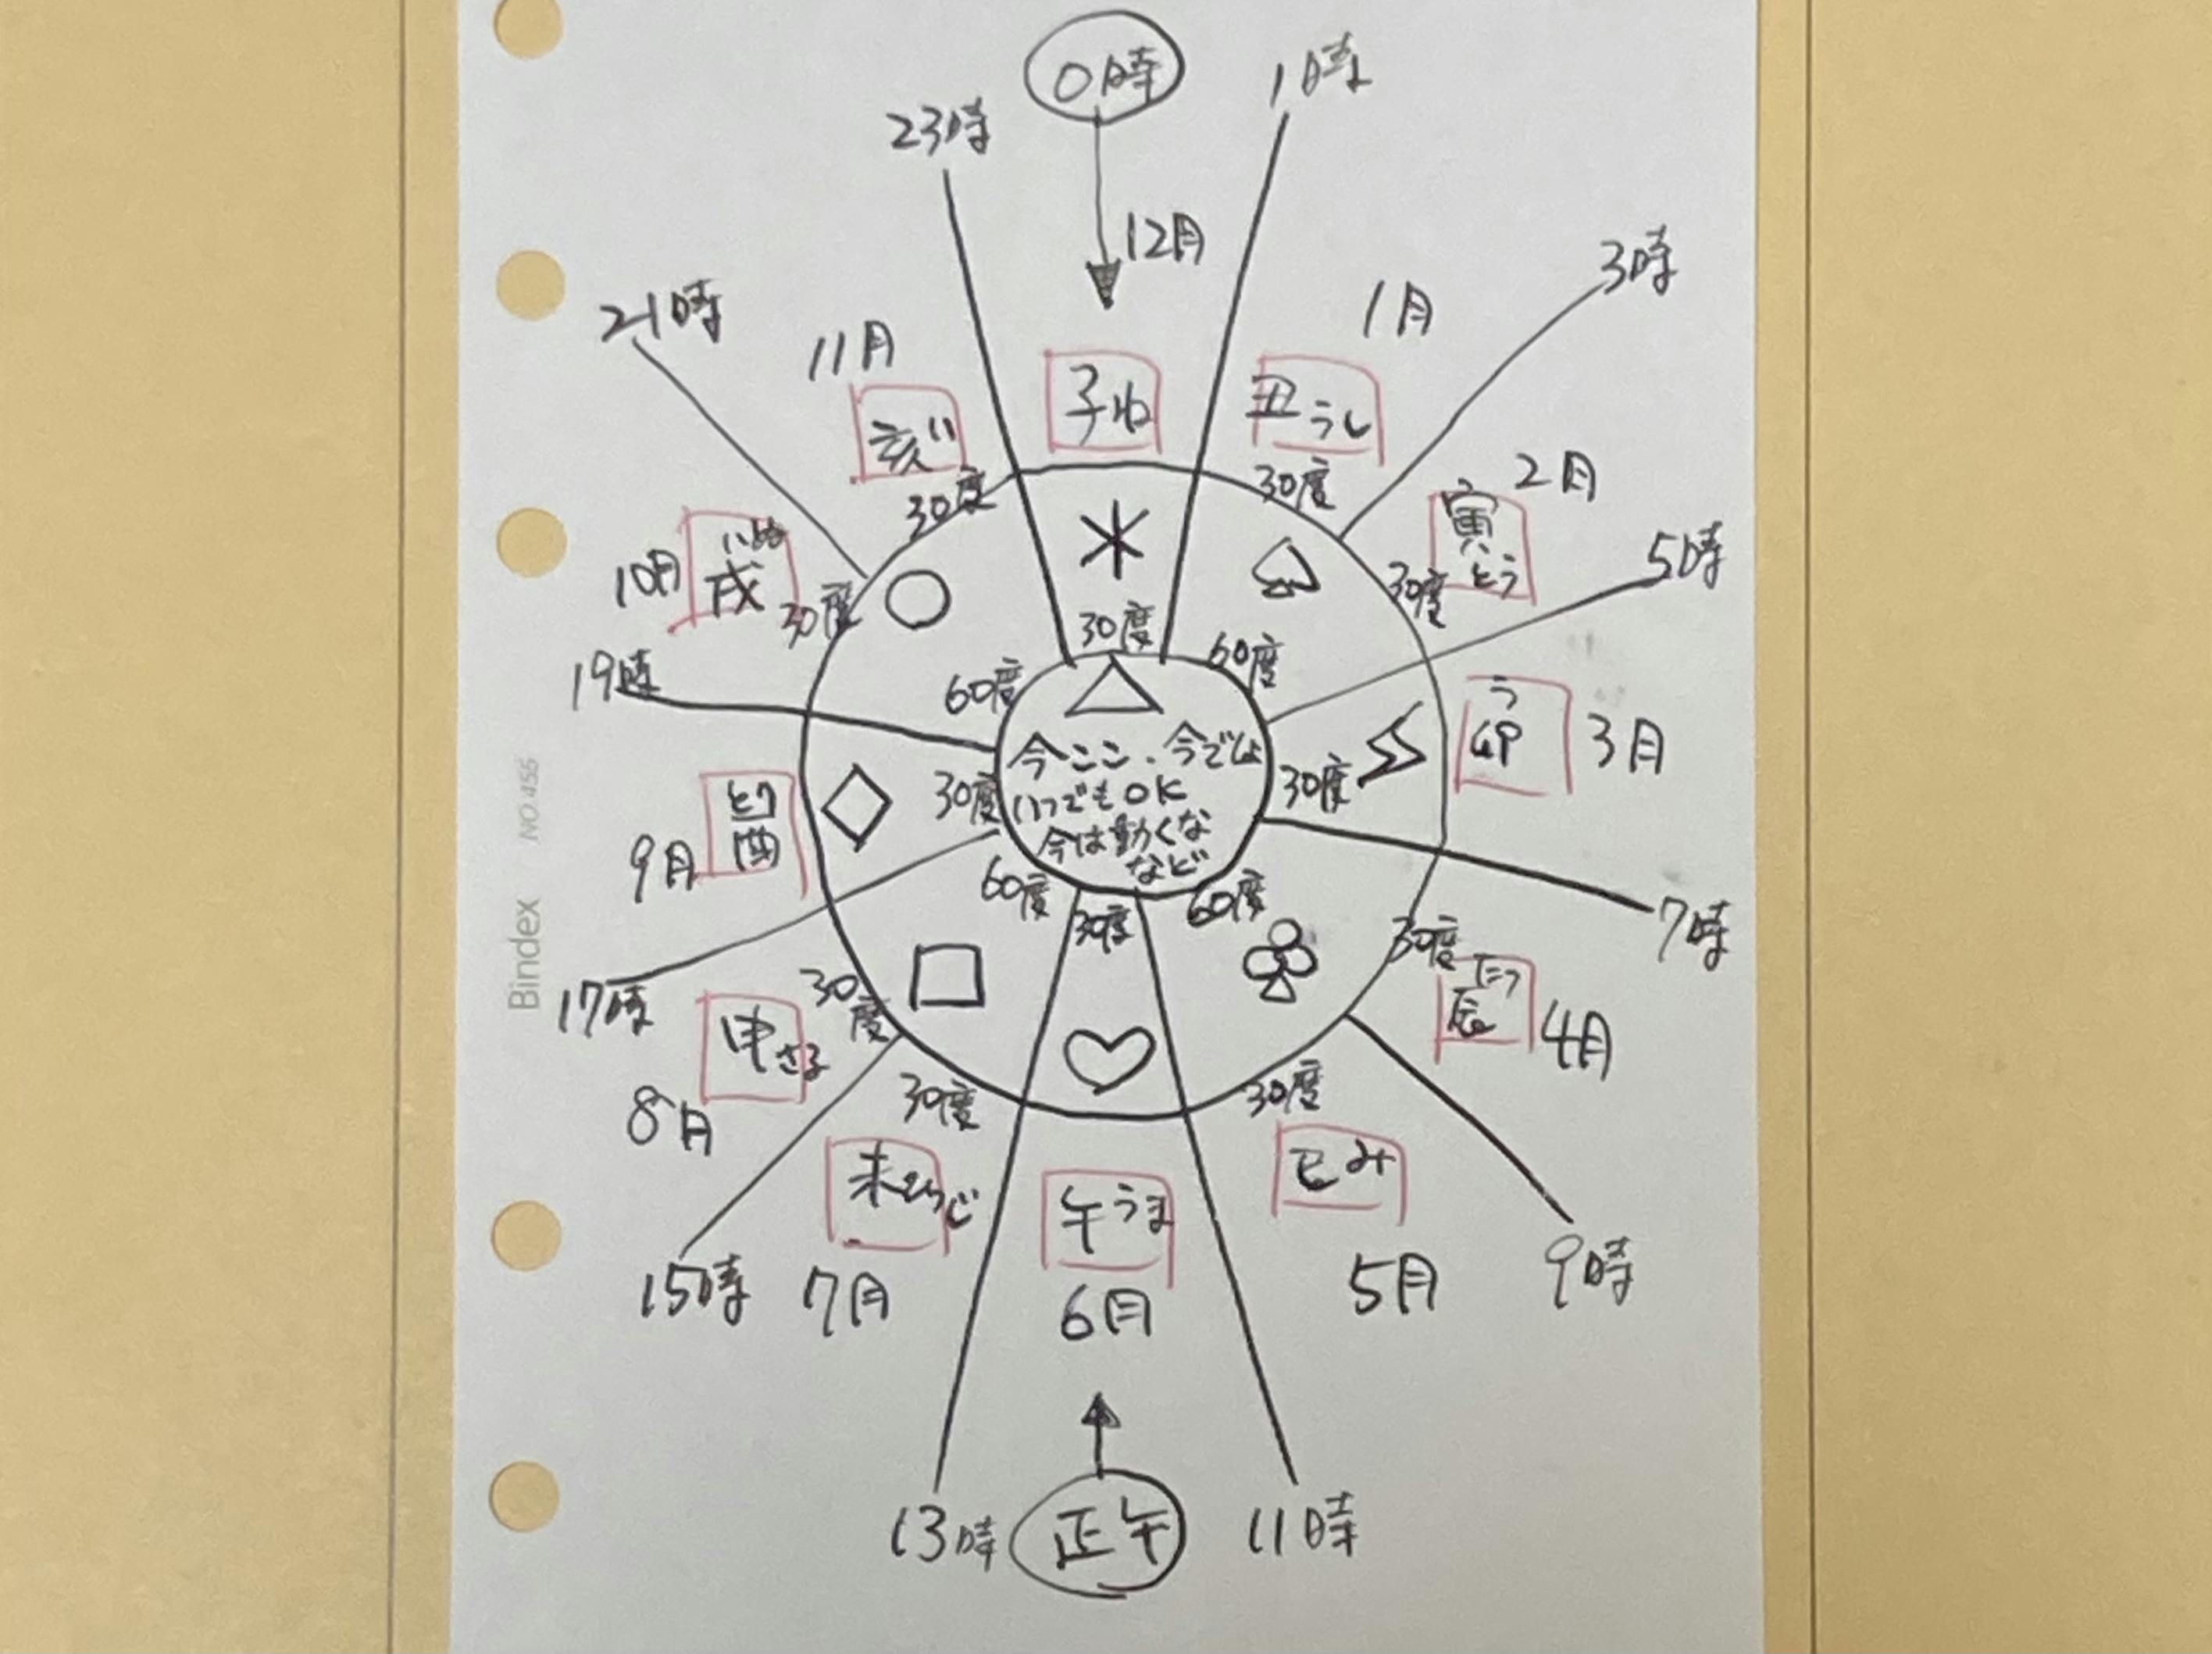 0時
1時
23時
12月
3時
21時
11月
1月
子ね
丑うし
亥い
2月
30度
30度
寅とら
5時
10月
いぬ
戌
30度
30度
30度
60度
19時
60度
う
卯
3月
今ここ、今でしょ
いつでもOK
今は動くな
など
30度
30度
とり
酉
9月
60度
30度
60度
7時
17時
30度
30度
たつ
辰
4月
申さる
8月
30度
30度
未ひつじ
午うま
巳み
15時
7月
6月
5月
9時
13時
正午
11時
Bindex NO.455